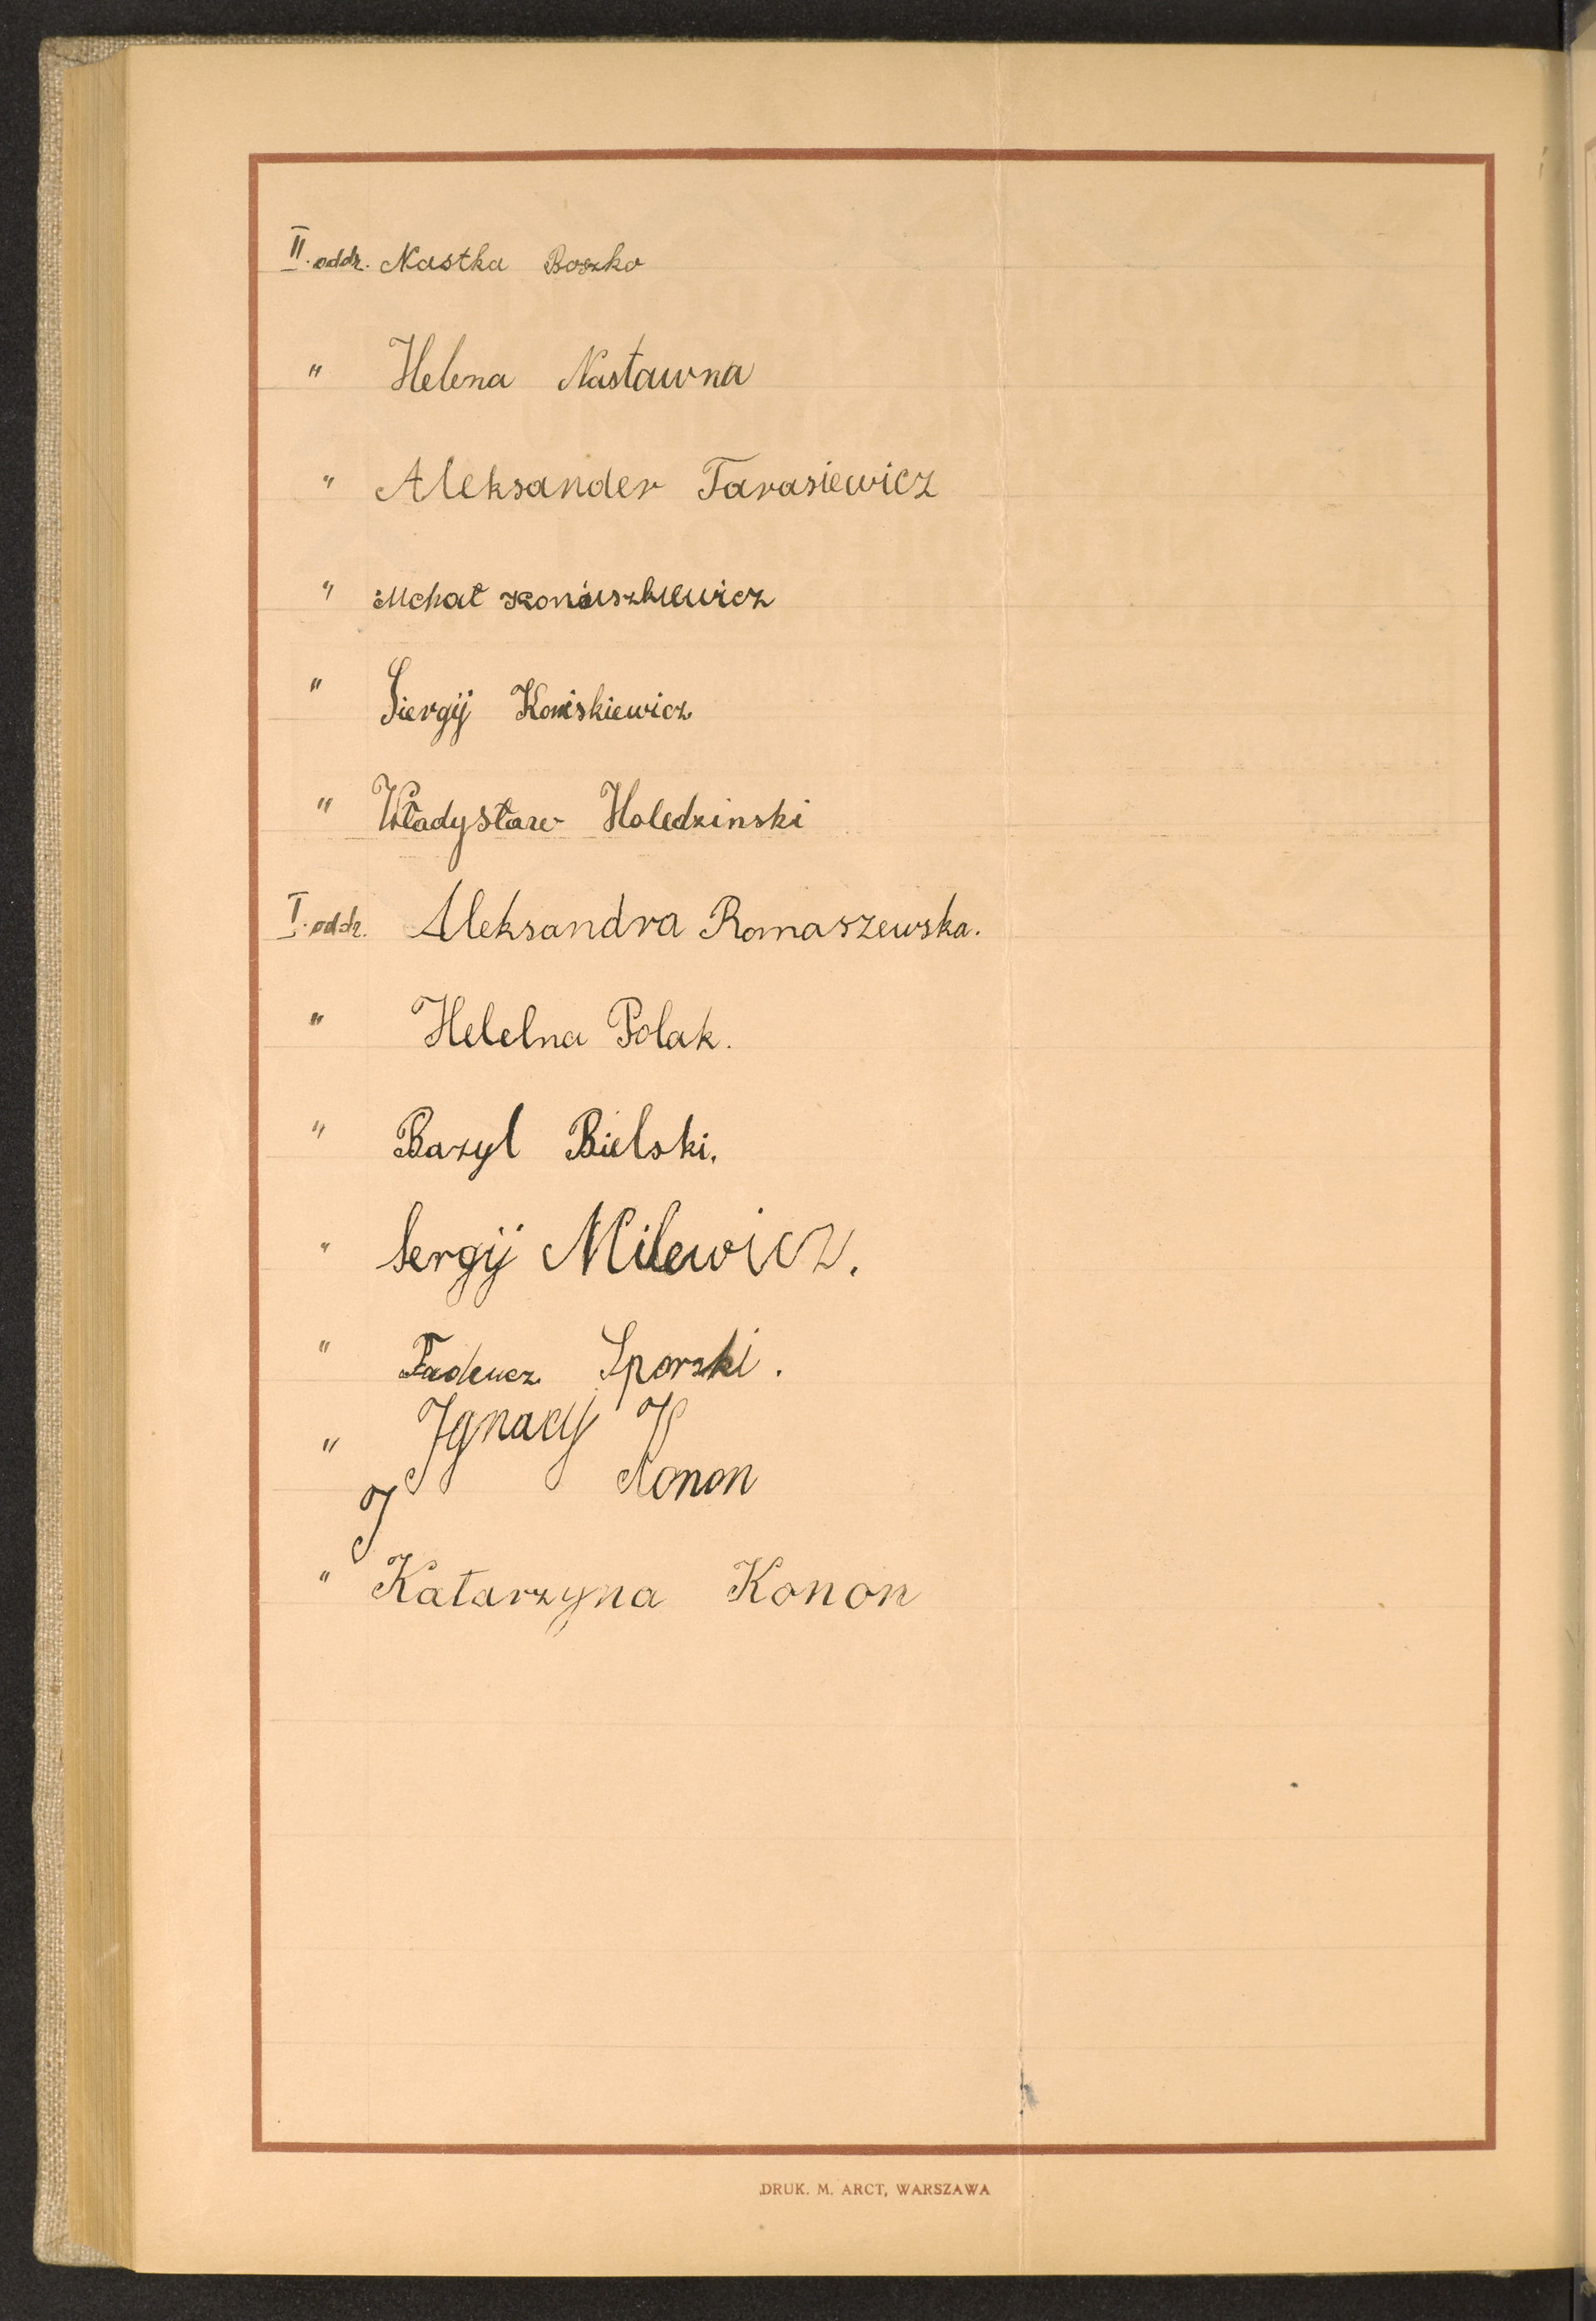 II. oddz. Nastka Boszko
" Helena Nastawna
" Aleksander Tarasiewicz
" Mchał Koniuszkiewicz
" Siergij Koniskiewicz
" Władysław Holedzinski
I. oddz. Aleksandra Romaszewska.
" Helelna Polak.
" Bazyl Bielski.
" Sergij Milewicz.
" Tadeucz Sporski.
" Ignacy K
Konon
I
" Katarzyna Konon
DRUK. M. ARCT, WARSZAWA